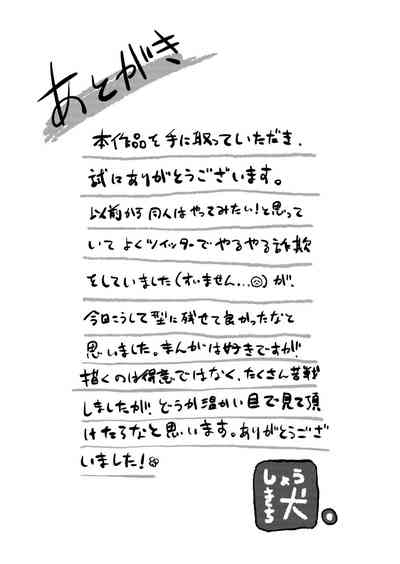 あとがき
本作品を手に取っていただき、
試にありがとうございます。
以前から同人はやってみたい！と思って
いて よくツイッターで やるやる詐欺
をしていました(すいません…☹)が、
今回こうして型に残せて良かったなと
思いました。まんがは好きですが
描くのは得意ではなく、たくさん苦戦
しましたが、どうか温かい目で見て頂
けたらなと思います。ありがとうござ
いました！
しょう
きち
犬